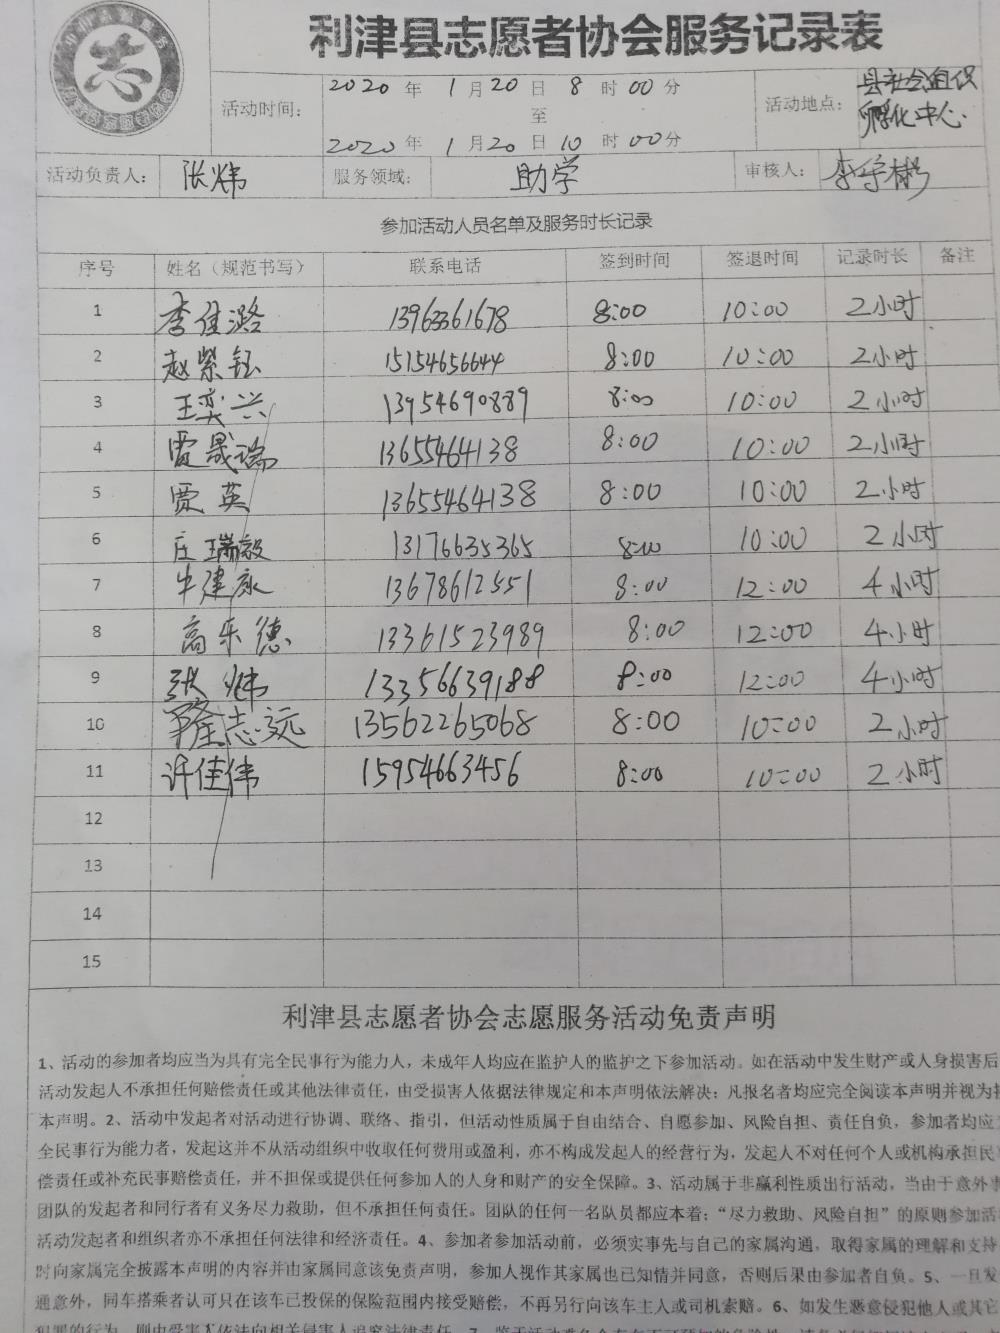 利津县志愿者协会服务记录表
志
活动时间：
2020年 1月20日 8时00分
至
2020年 1月20日 10时00分
活动地点：
县社会组织
孵化中心
活动负责人： 张炜 服务领域： 助学 审核人： 李宇彬
参加活动人员名单及服务时长记录
序号 姓名（规范书写） 联系电话 签到时间 签退时间 记录时长 备注
1 李佳潞 13963361678 8:00 10:00 2小时
2 赵紫钰 15154656644 8:00 10:00 2小时
3 王奕兴 13954690889 8:00 10:00 2小时
4 贾晟瑞 13655464138 8:00 10:00 2小时
5 贾英 13655464138 8:00 10:00 2小时
6 庄瑞毅 13176635365 8:00 10:00 2小时
7 牛建康 13678612551 8:00 12:00 4小时
8 高乐德 13361523989 8:00 12:00 4小时
9 张炜 13356639188 8:00 12:00 4小时
10 志远 13562265068 8:00 10:00 2小时
11 许佳伟 15954663456 8:00 10:00 2小时
12
13
14
15
利津县志愿者协会志愿服务活动免责声明
1、活动的参加者均应当为具有完全民事行为能力人，未成年人均应在监护人的监护之下参加活动。如在活动中发生财产或人身损害后
活动发起人不承担任何赔偿责任或其他法律责任，由受损害人依据法律规定和本声明依法解决；凡报名者均应完全阅读本声明并视为
本声明。2、活动中发起者对活动进行协调、联络、指引，但活动性质属于自由结合、自愿参加、风险自担、责任自负，参加者均应
全民事行为能力者，发起这并不从活动组织中收取任何费用或盈利，亦不构成发起人的经营行为，发起人不对任何个人或机构承担民
偿责任或补充民事赔偿责任，并不担保或提供任何参加人的人身和财产的安全保障。3、活动属于非赢利性质出行活动，当由于意外事
团队的发起者和同行者有义务尽力救助，但不承担任何责任。团队的任何一名队员都应本着：“尽力救助、风险自担”的原则参加活
活动发起者和组织者亦不承担任何法律和经济责任。4、参加者参加活动前，必须实事先与自己的家属沟通，取得家属的理解和支持
时向家属完全披露本声明的内容并由家属同意该免责声明，参加人视作其家属也已知情并同意，否则后果由参加者自负。5、一旦发
通意外，同车搭乘者认可只在该车已投保的保险范围内接受赔偿，不再另行向该车主人或司机索赔。6、如发生恶意侵犯他人或其它
犯罪的行为，则由受害人依法向相关侵害人追究法律责任。7、